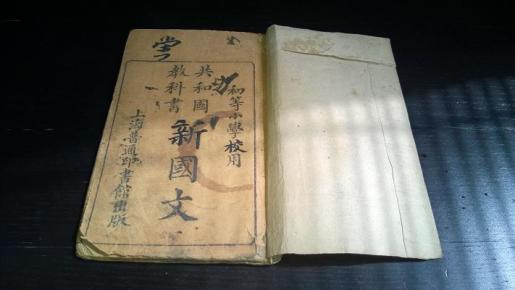 初等小學校用
共和國
教科書
新國文
上海普通印書館出版